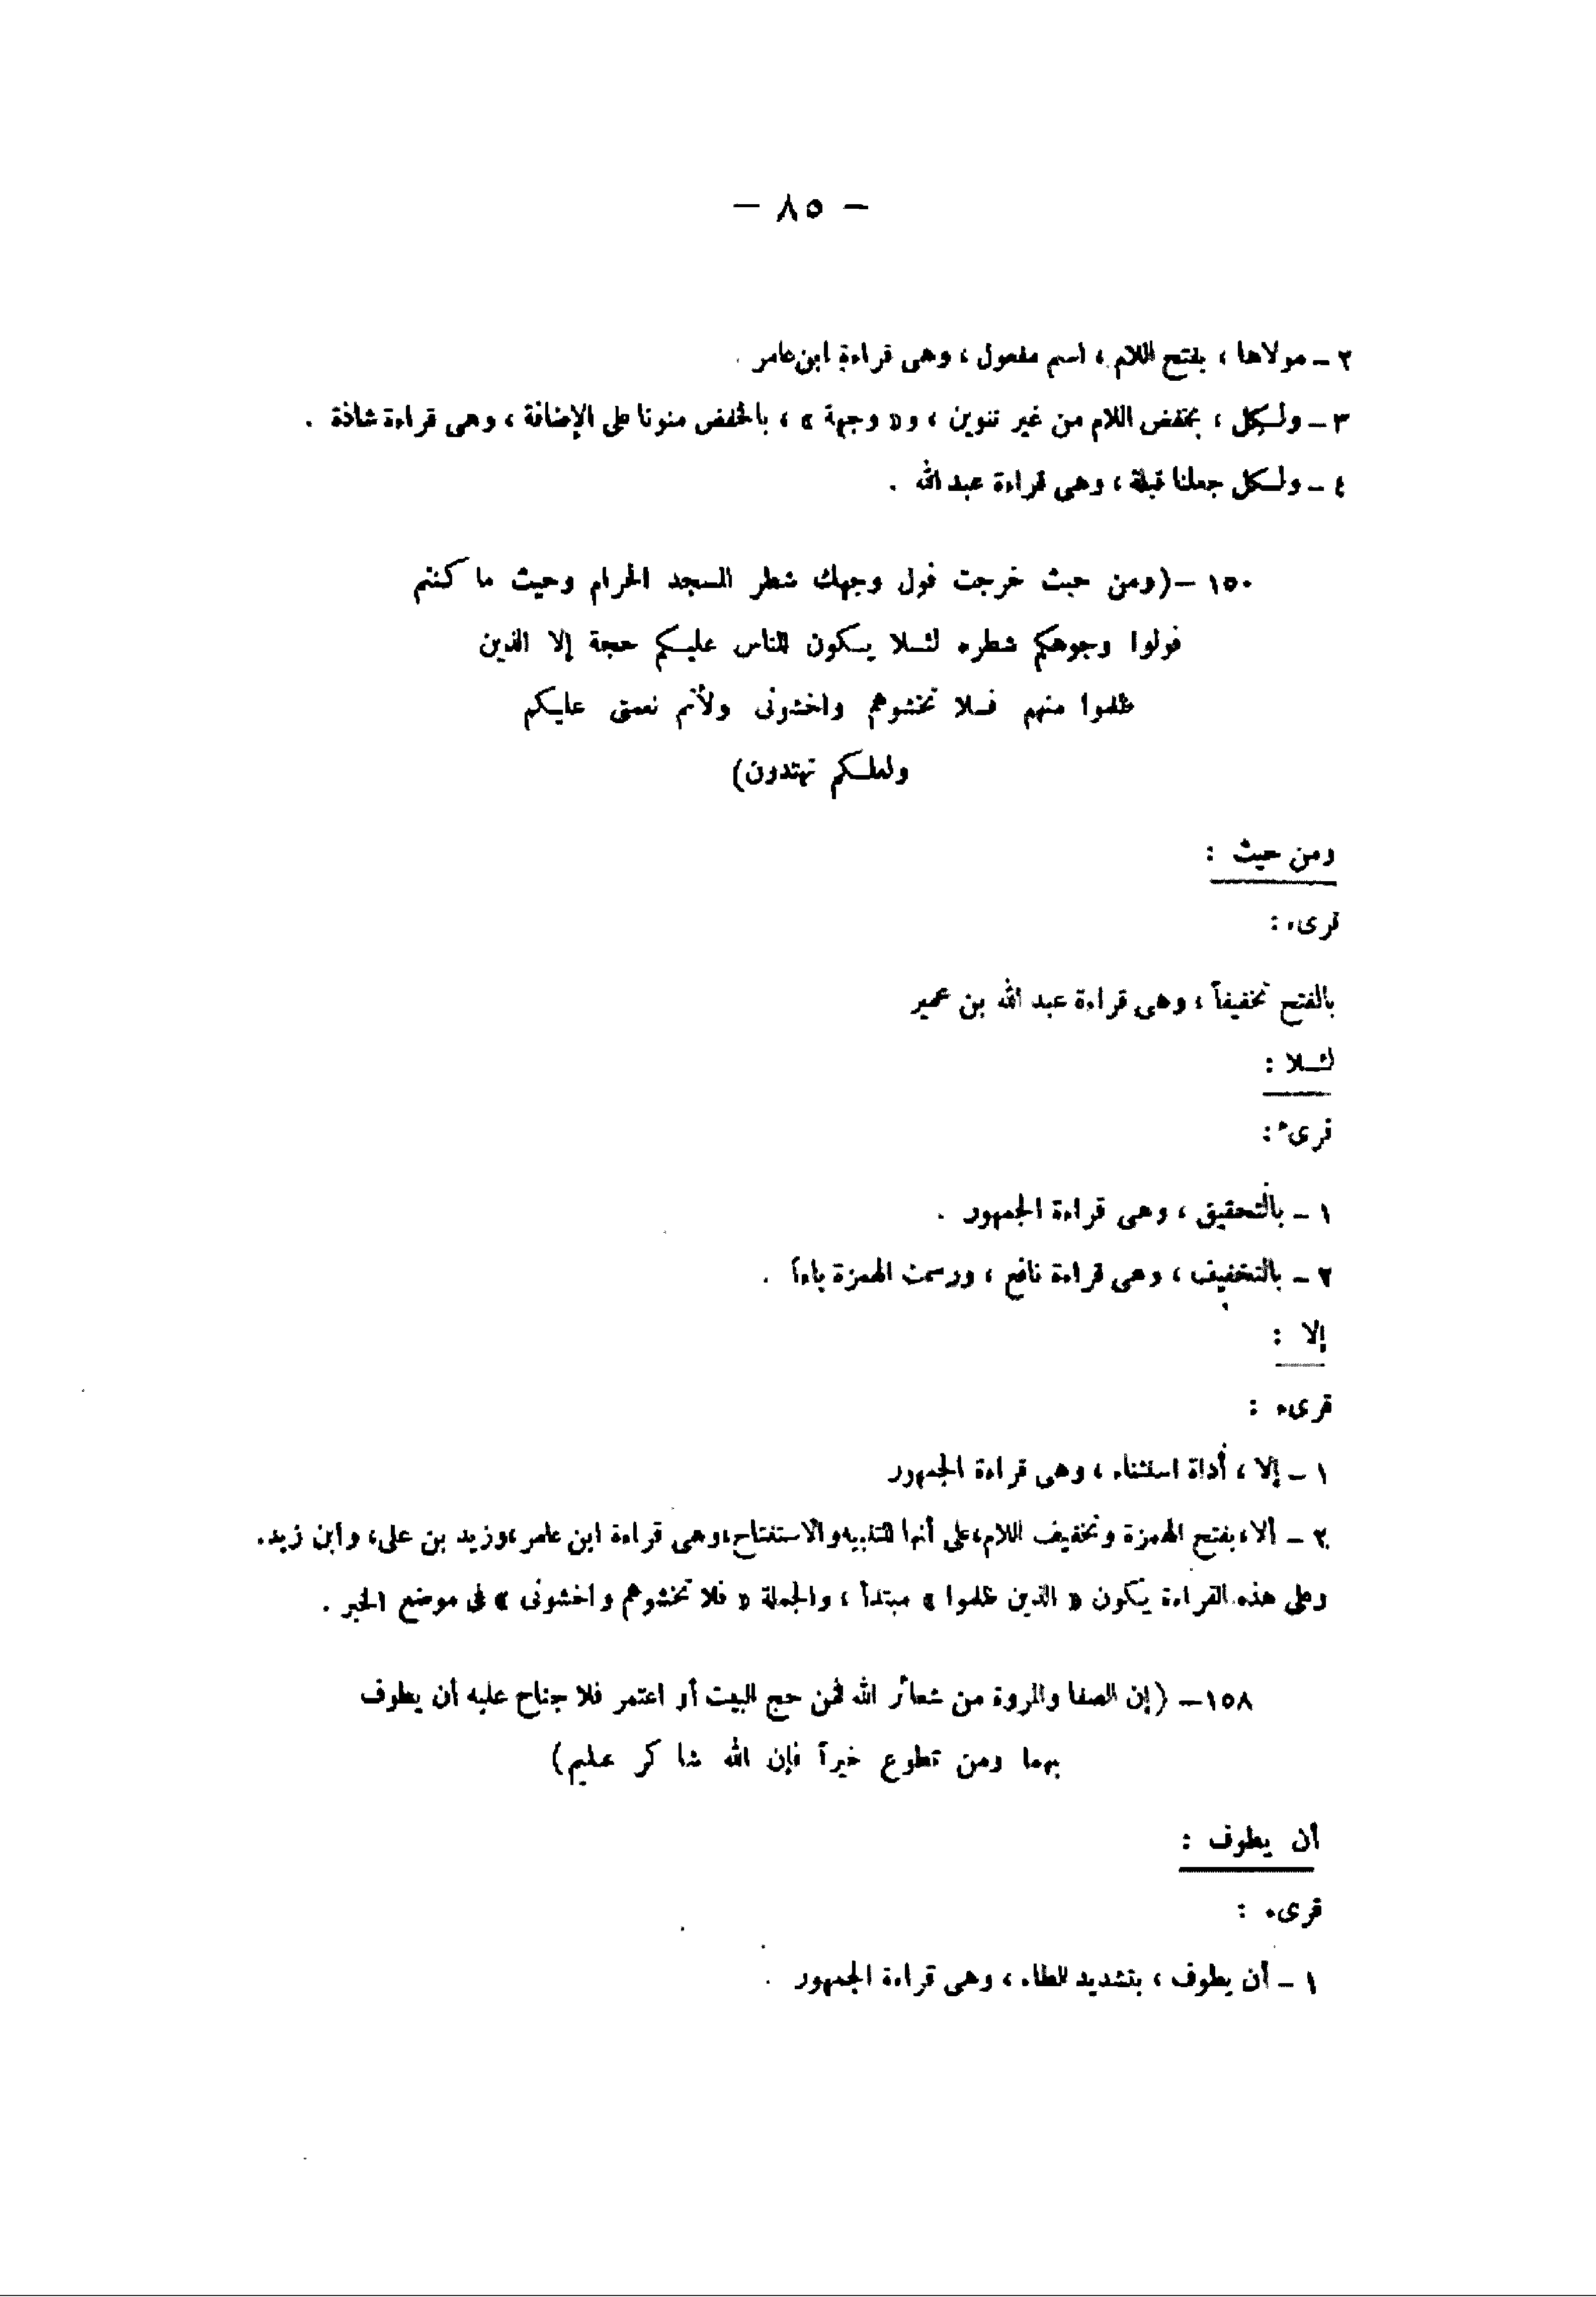 — ٨٥ —
٢ — مولاها ، بفتح اللام ، اسم مفعول ، وهى قراءة ابن عامر .
٣ — ولكل ، بخفض اللام من غير تنوين ، و« وجهة » ، بالخفض منونا على الإضافة ، وهى قراءة شاذة .
٤ — ولكل جعلنا قبلة ، وهى قراءة عبد الله .
١٥٠ — (ومن حيث خرجت فول وجهك شطر المسجد الحرام وحيث ما كنتم
فولوا وجوهكم شطره لئلا يكون للناس عليكم حجة إلا الذين
ظلموا منهم فلا تخشوهم واخشونى ولأتم نعمتى عليكم
ولعلكم تهتدون)
ومن حيث :
قرىء :
بالفتح تخفيفاً ، وهى قراءة عبد الله بن عمير
لئلا :
قرىء :
١ — بالتحقيق ، وهى قراءة الجمهور .
٢ — بالتخفيف ، وهى قراءة نافع ، ورسمت الهمزة ياءاً .
إلا :
قرىء :
١ — إلا ، أداة استثناء ، وهى قراءة الجمهور
٢ — ألا ، بفتح الهمزة وتخفيف اللام ، على أنها للتنبيه والاستفتاح ، وهى قراءة ابن عامر ، وزيد بن على ، وابن زيد .
وعلى هذه القراءة يكون « الذين ظلموا » مبتدأ ، والجملة « فلا تخشوهم واخشونى » فى موضع الخبر .
١٥٨ — (إن الصفا والمروة من شعائر الله فمن حج البيت أو اعتمر فلا جناح عليه أن يطوف
بهما ومن تطوع خيراً فإن الله شاكر عليم)
أن يطوف :
قرىء :
١ — أن يطوف ، بتشديد الطاء ، وهى قراءة الجمهور .